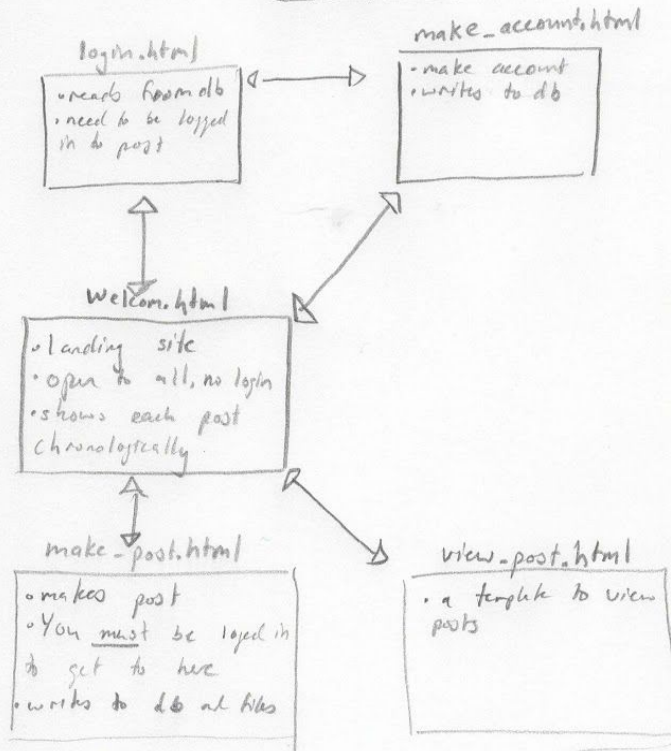 login.html
• reads from db
• need to be logged
in to post
make_account.html
• make account
• writes to db
Welcom.html
• landing site
• open to all, no login
• shows each post
chronologically
make_post.html
• makes post
• You must be loged in
to get to here
• writes to db files
view_post.html
• a template to view
posts